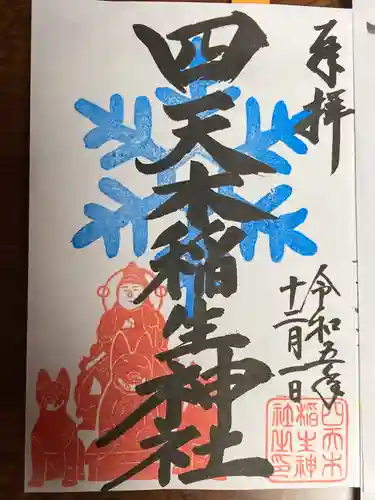 奉拝
四天木稲生神社
令和五年
十二月一日
四天木
稲生神
社之印